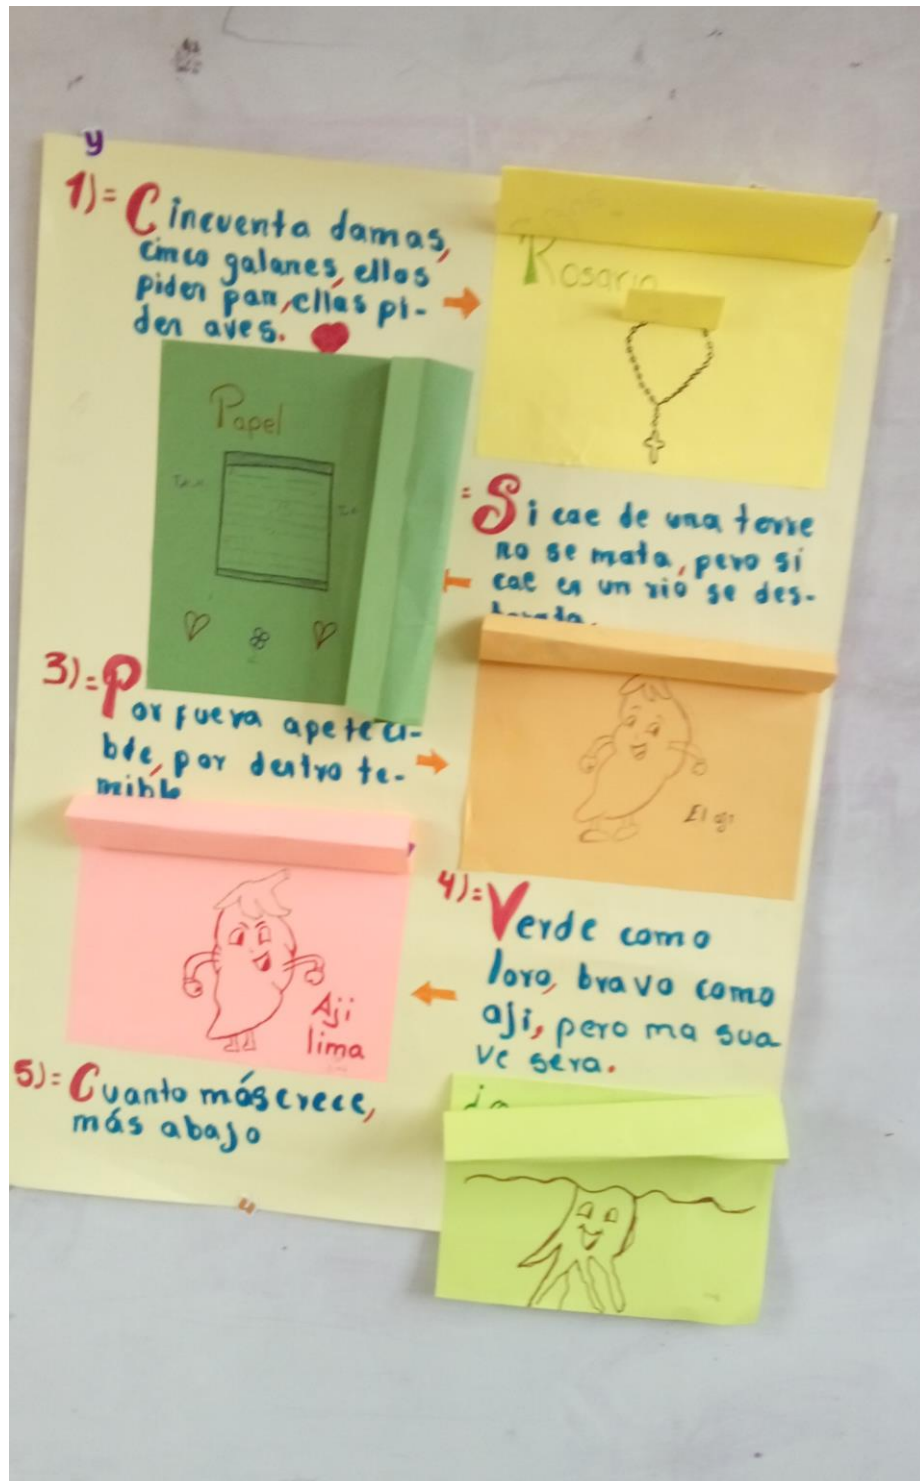 y
1)= Cincuenta damas,
cinco galanes, ellos
piden pan, ellas pi-
den aves.
Rosario
Papel
= Si cae de una torre
no se mata, pero si
cae en un rio se des-
3)= Por fuera apeteci-
ble, por dentro te-
mible
El aji
4)= Verde como
loro, bravo como
aji, pero ma sua
ve sera.
Aji
lima
5)= Cuanto más crece,
más abajo